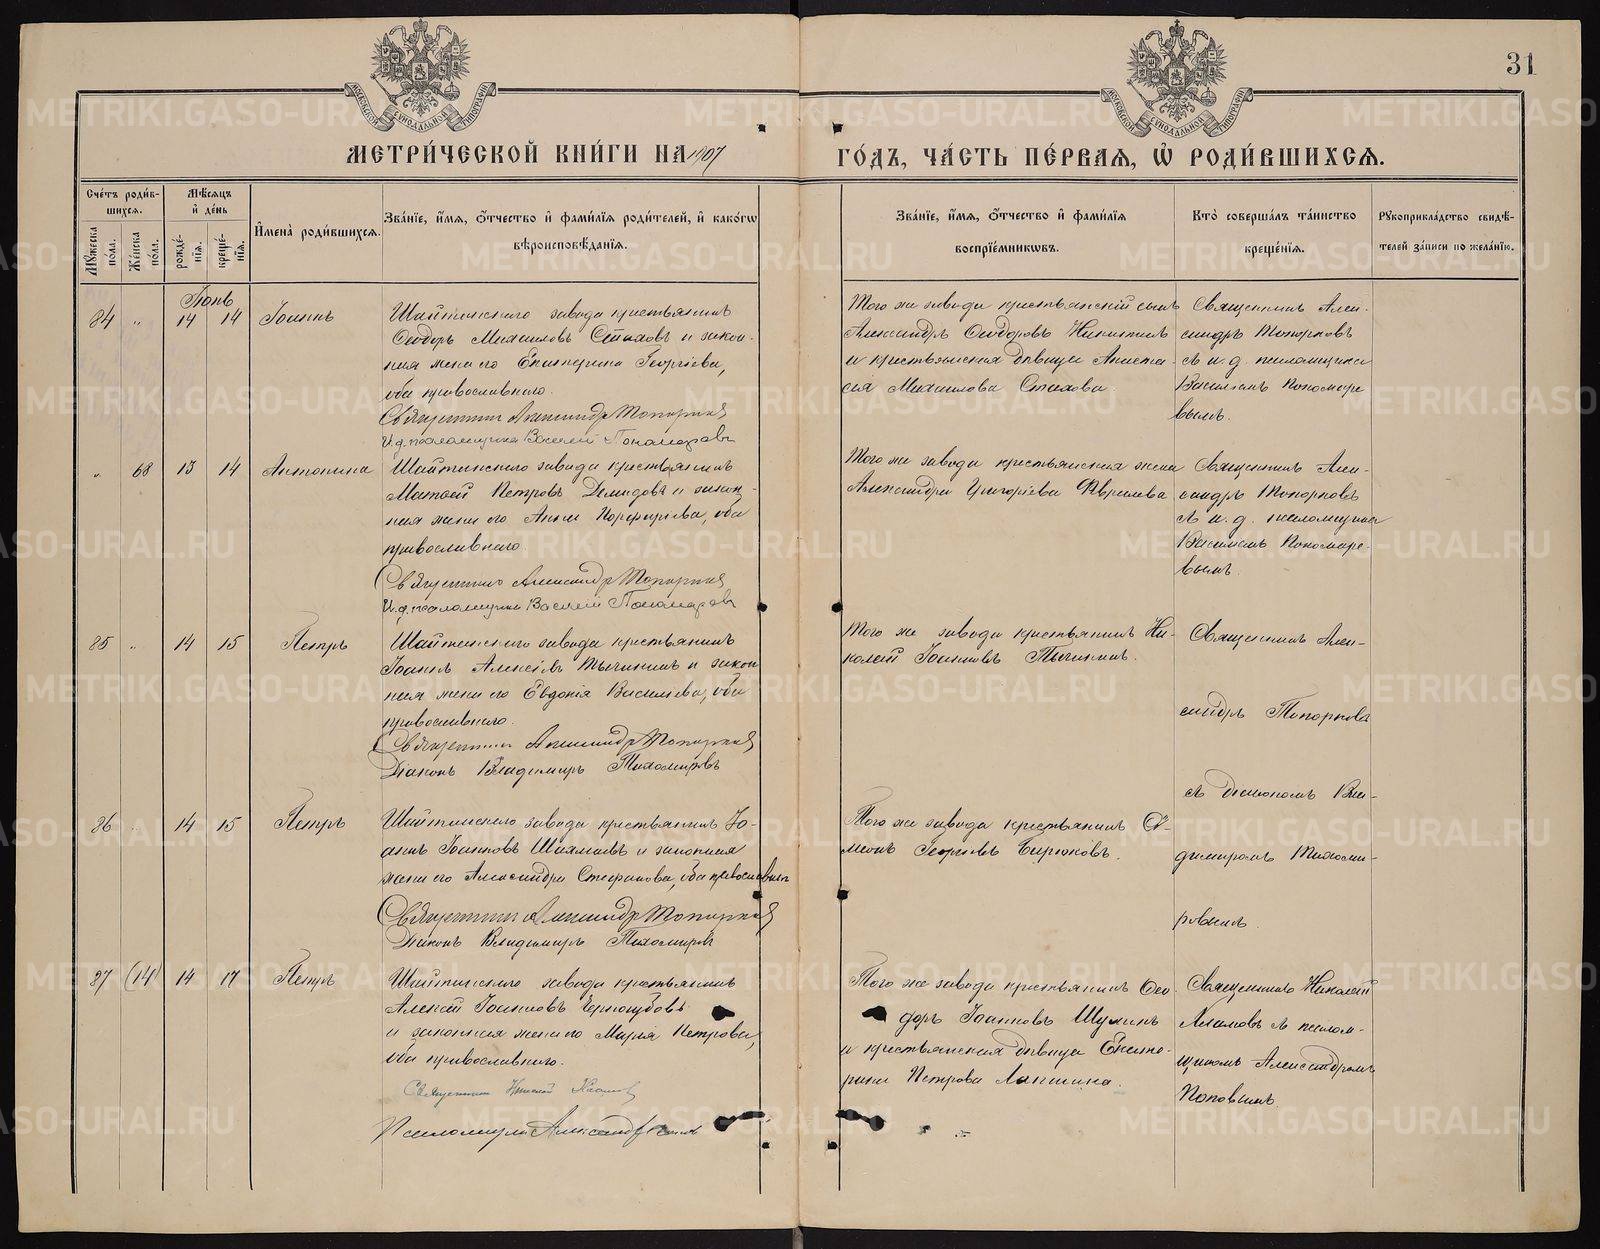 31
МОСКОВСКОЙ СѴНОДАЛЬНОЙ ТИПОГРАФІИ
МОСКОВСКОЙ СѴНОДАЛЬНОЙ ТИПОГРАФІИ
МЕТРИ́ЧЕСКОЙ КНИ́ГИ НА 1907
ГО́ДЪ, ЧА́СТЬ ПЕ́РВАЯ, Ѡ҆ РОДИ́ВШИХСЯ.
Сче́тъ роди́в-
шихся.
Мѣ́сяцъ
и҆ де́нь
Мꙋ́жеска
пола.
Же́нска
по́ла.
рожде́-
нія.
креще́-
нія.
И҆мена̀ роди́вшихся.
Зва́нїе, и҆́мя, ѻ҆́тчество и҆ фами́лїя роди́телей, и҆ како́гѡ
вѣроисповѣ́данїя.
Зва́нїе, и҆́мя, ѻ҆́тчество и҆ фами́лїя
воспрїе́мниковъ.
Кто̀ соверша́лъ та́инство
креще́нїя.
Рꙋкоприкла́дство свидѣ́-
телей за́писи по жела́нїю.
Іюнь
84 " 14 14 Іоаннъ
Шайтанскаго завода крестьянинъ
Ѳеодоръ Михаиловъ Стаховъ и закон-
ная жена его Екатерина Георгіева,
оба православнаго.
Священникъ Александръ Топорковъ
И.д. псаломщика Василій Пономаревъ
Того же завода крестьянскій сынъ
Александръ Ѳеодоровъ Никитинъ
и крестьянская дѣвица Анаста-
сія Михаилова Стахова.
Священникъ Алек-
сандръ Топорковъ
съ и.д. псаломщика
Василіемъ Пономаре-
вымъ.
" 68 13 14 Антонина
Шайтанскаго завода крестьянинъ
Матѳей Петровъ Демидовъ и закон-
ная жена его Анна Порфирьева, оба
православнаго.
Священникъ Александръ Топорковъ
И.д. псаломщика Василій Пономаревъ
Того же завода крестьянская жена
Александра Григоріева
Священникъ Алек-
сандръ Топорковъ
съ и.д. псаломщика
Василіемъ Пономаре-
вымъ.
85 " 14 15 Петръ
Шайтанскаго завода крестьянинъ
Іоаннъ Алексіевъ Тычкинъ и закон
ная жена его Евдокія Василіева, оба
православнаго.
Священникъ Александръ Топорковъ
Діаконъ Владимиръ Тихомировъ
Того же завода крестьянинъ Ни-
колай Іоанновъ Тычкинъ.
Священникъ Алек-
сандръ Топорковъ
съ діакономъ Вла-
димиромъ Тихоми-
ровымъ.
86 " 14 15 Петръ
Шайтанскаго завода крестьянинъ Іо-
аннъ Іоанновъ Шахмаевъ и законная
жена его Александра Стефанова, оба православнаго
Священникъ Александръ Топорковъ
Діаконъ Владимиръ Тихомировъ
Того же завода крестьянинъ Си-
меонъ Георгіевъ Бирюковъ.
87 (14) 14 17 Петръ
Шайтанскаго завода крестьянинъ
Алексій Іоанновъ Черноgубовъ
и законная жена его Марія Петрова,
оба православнаго.
Священникъ Николай
Псаломщикъ Александръ Поповъ
Того же завода крестьянинъ Ѳео-
доръ Іоанновъ Шулинъ
и крестьянская дѣвица Екате-
рина Петрова Лапшина.
Священникъ Николай
съ псалом-
щикомъ Александромъ
Поповымъ.
METRIKI.GASO-URAL.RU